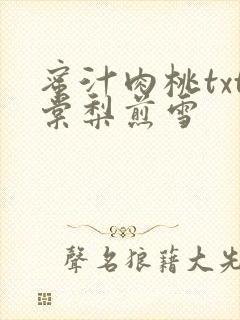 蜜汁肉桃txt
棠梨煎雪
聲名狼藉大先